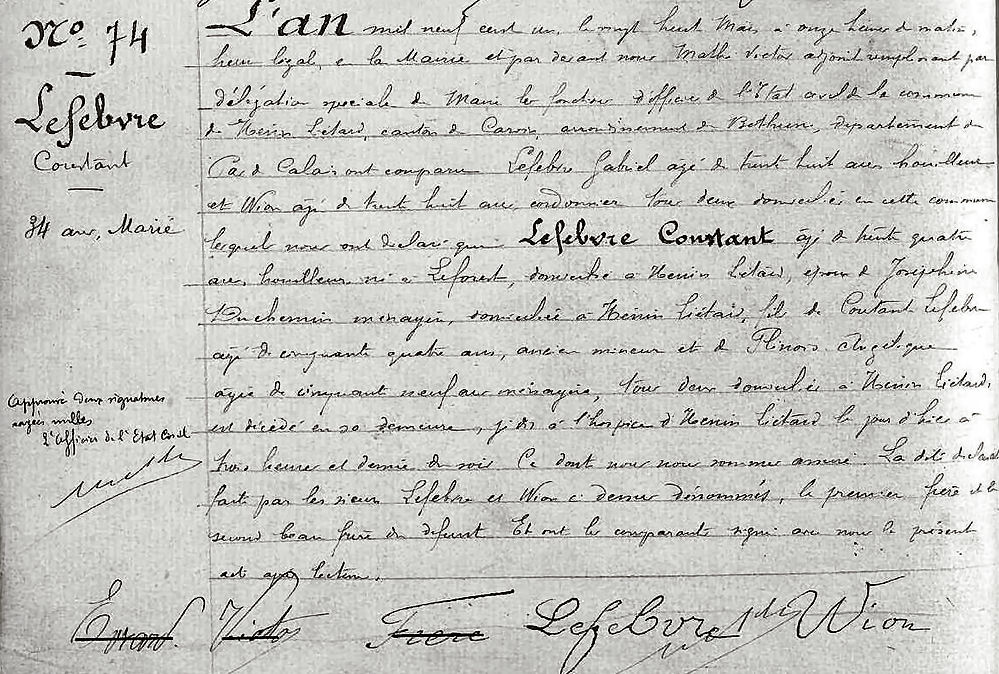 N° 74
Lefebvre
Constant
34 ans, Marié
L'an mil neuf cent un, le vingt huit Mai, à onze heures du matin,
heure légal, en la Mairie et par devant nous Mathé Victor adjoint remplissant par
délégation spéciale du Maire les fonctions d'officier de l'Etat civil de la commune
de Henin Liétard, canton de Carvin, arrondissement de Bethune, département du
Pas de Calais ont comparu Lefebvre Gabriel agé de trente huit ans houilleur
et Wion agé de trente huit ans, cordonnier tous deux domiciliés en cette commune
lesquels nous ont déclaré que Lefebvre Constant âgé de trente quatre
ans, houilleur, né à Leforest, domicilié à Henin Liétard, époux de Joséphine
Duchemin ménagère, domiciliée à Hénin Liétard, fils de Constant Lefebvre
agé de cinquante quatre ans, ancien mineur et de Angelique
agée de cinquante neuf ans ménagère, tous deux domiciliés à Henin Liétard,
est décédé en sa demeure, à l'hospice d'Henin Liétard le jour d'hier à
trois heures et demie du soir Ce dont nous nous sommes assuré. La dite déclaration
faite par les sieurs Lefebvre et Wion ci dessus dénommés, le premier frère et le
second beau frère du défunt Et ont les comparants signé avec nous le présent
acte après lecture.
Approuvé deux signatures
rayées nulles
L'Officier de l'Etat Civil
Victor Lefebvre Wion